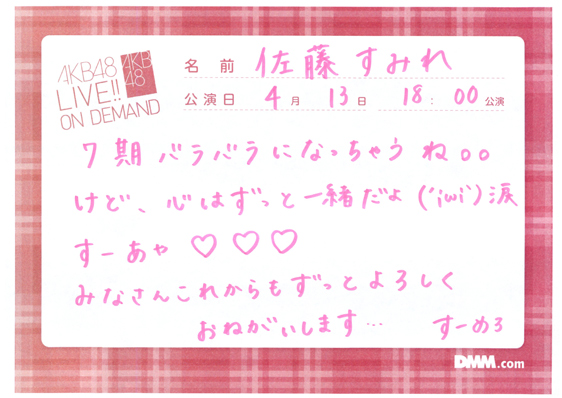 AKB48
LIVE!!
ON DEMAND
AKB
48
名前 佐藤すみれ
公演日 4月 13日 18:00公演
7期バラバラになっちゃうね。。
けど、心はずっと一緒だよ(´;ω;`)涙
すーあゃ♡♡♡
みなさんこれからもずっとよろしく
おねがいします… すーめろ
DMM.com